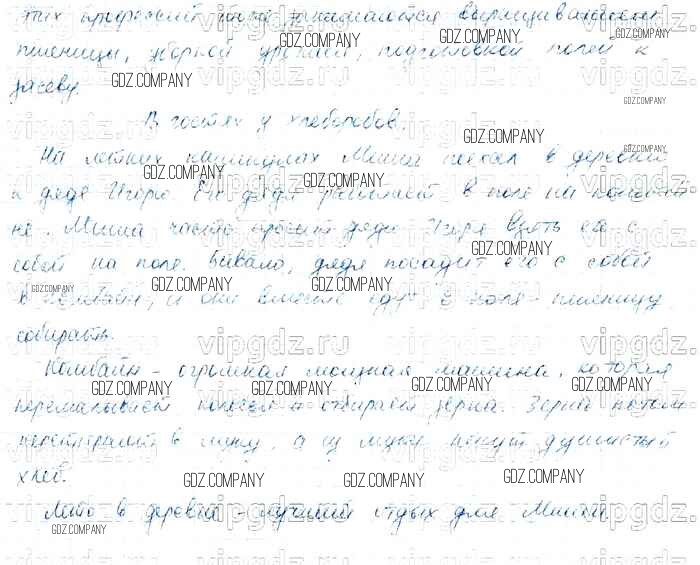 этих профессий люди занимаются выращиванием
пшеницы, уборкой урожая, подготовкой полей к
засеву.
В гостях у хлеборобов.
На летних каникулах Миша поехал в деревню
к дяде Игорю. Его дядя работает в поле на комбай-
не. Миша часто просит дядю Игоря взять его с
собой на поле. Бывало, дядя посадит его с собой
в комбайн, и они вместе едут в поле - пшеницу
собирать.
Комбайн - огромная мощная машина, которая
перемалывает колосья и отбирает зёрна. Зёрна потом
перетирают в муку, а из муки пекут душистый
хлеб.
Лето в деревне - лучший отдых для Миши.
GDZ.COMPANY
vipgdz.ru